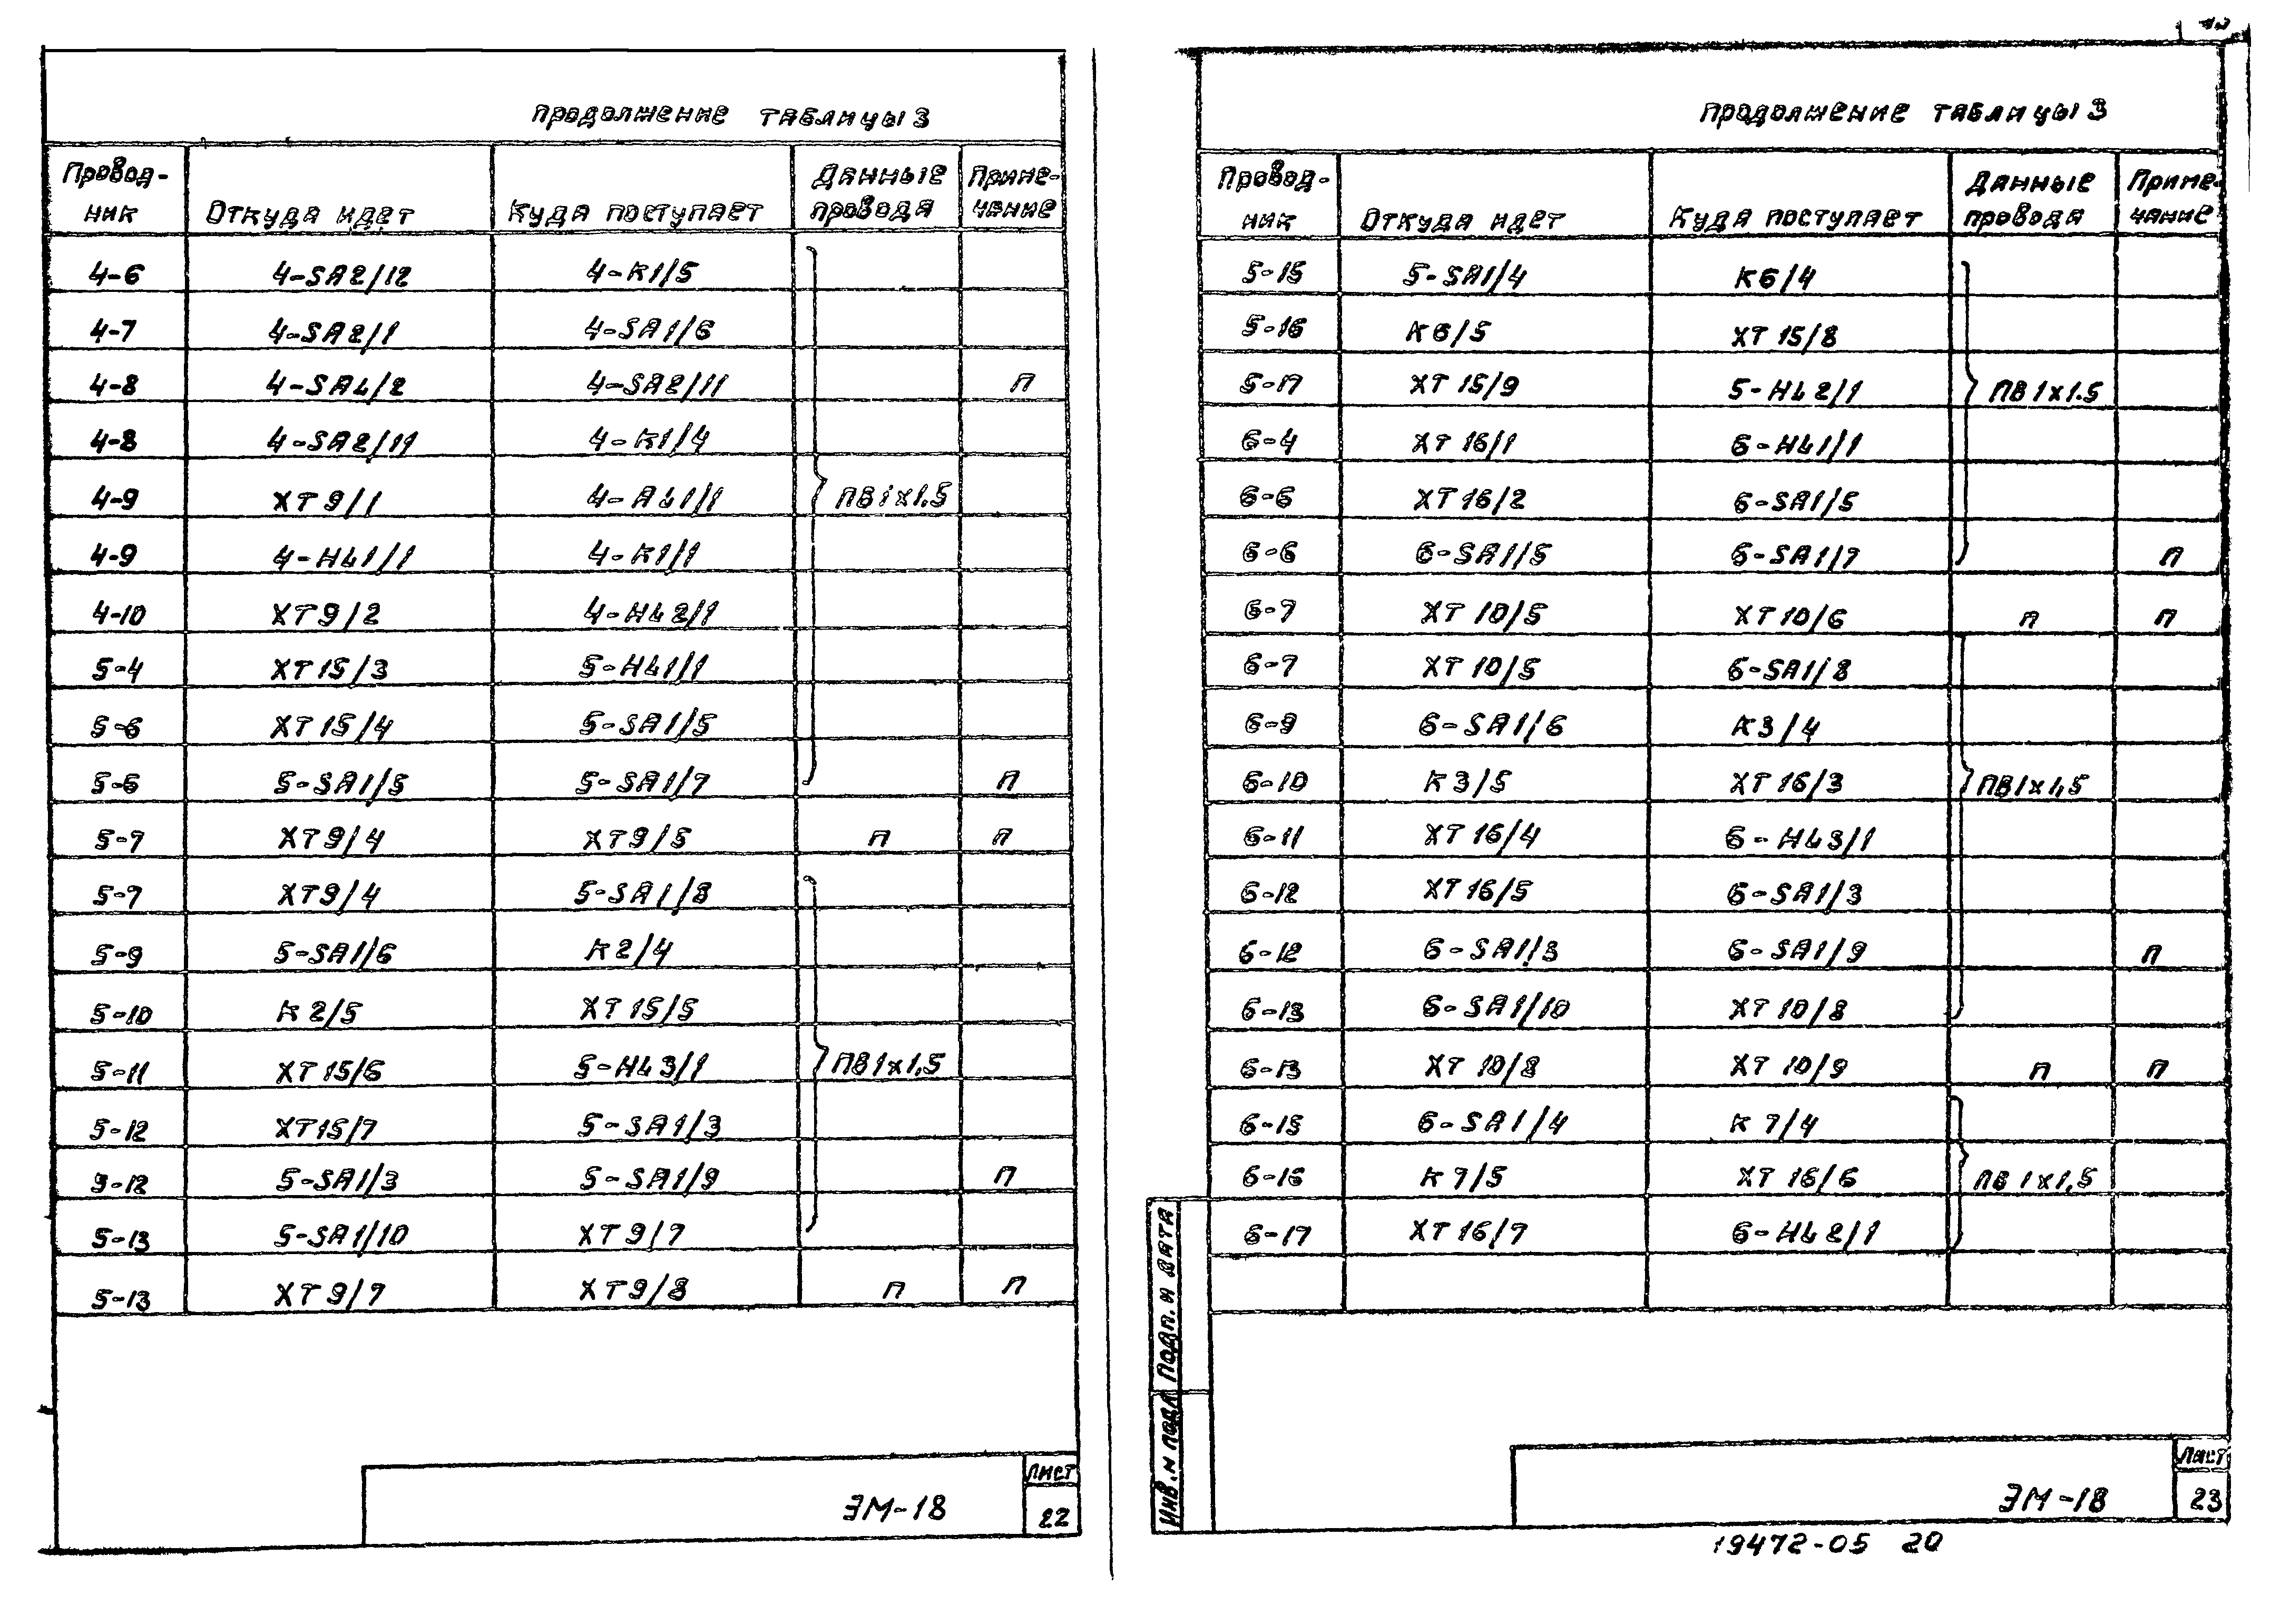 Продолжение таблицы 3
Провод-ник Откуда идет Куда поступает Данные провода Приме-чание
4-6 4-SA2/12 4-К1/5
4-7 4-SA2/1 4-SA1/6
4-8 4-SA1/2 4-SA2/11 П
4-8 4-SA2/11 4-К1/4
4-9 ХТ9/1 4-АL1/1 ПВ1х1.5
4-9 4-НL1/1 4-К1/1
4-10 ХТ9/2 4-НL2/1
5-4 ХТ15/3 5-НL1/1
5-6 ХТ15/4 5-SA1/5
5-6 5-SA1/5 5-SA1/7 П
5-7 ХТ9/4 ХТ9/5 П П
5-7 ХТ9/4 5-SA1/8
5-9 5-SA1/6 К2/4
5-10 К2/5 ХТ15/5
5-11 ХТ15/6 5-НL3/1 ПВ1х1,5
5-12 ХТ15/7 5-SA1/3
5-12 5-SA1/3 5-SA1/9 П
5-13 5-SA1/10 ХТ9/7
5-13 ХТ9/7 ХТ9/8 П П
ЭМ-18
Лист
22
Продолжение таблицы 3
Провод-ник Откуда идет Куда поступает Данные провода Приме-чание
5-15 5-SA1/4 К6/4
5-16 К6/5 ХТ15/8
5-17 ХТ15/9 5-НL2/1 ПВ1х1.5
6-4 ХТ16/1 6-НL1/1
6-6 ХТ16/2 6-SA1/5
6-6 6-SA1/5 6-SA1/7 П
6-7 ХТ10/5 ХТ10/6 П П
6-7 ХТ10/5 6-SA1/8
6-9 6-SA1/6 К3/4
6-10 К3/5 ХТ16/3 ПВ1х1,5
6-11 ХТ16/4 6-НL3/1
6-12 ХТ16/5 6-SA1/3
6-12 6-SA1/3 6-SA1/9 П
6-13 6-SA1/10 ХТ10/8
6-13 ХТ10/8 ХТ10/9 П П
6-15 6-SA1/4 К7/4
6-16 К7/5 ХТ16/6 ПВ1х1,5
6-17 ХТ16/7 6-НL2/1
Инв.н подл Подп. и дата
ЭМ-18
Лист
23
19472-05 20